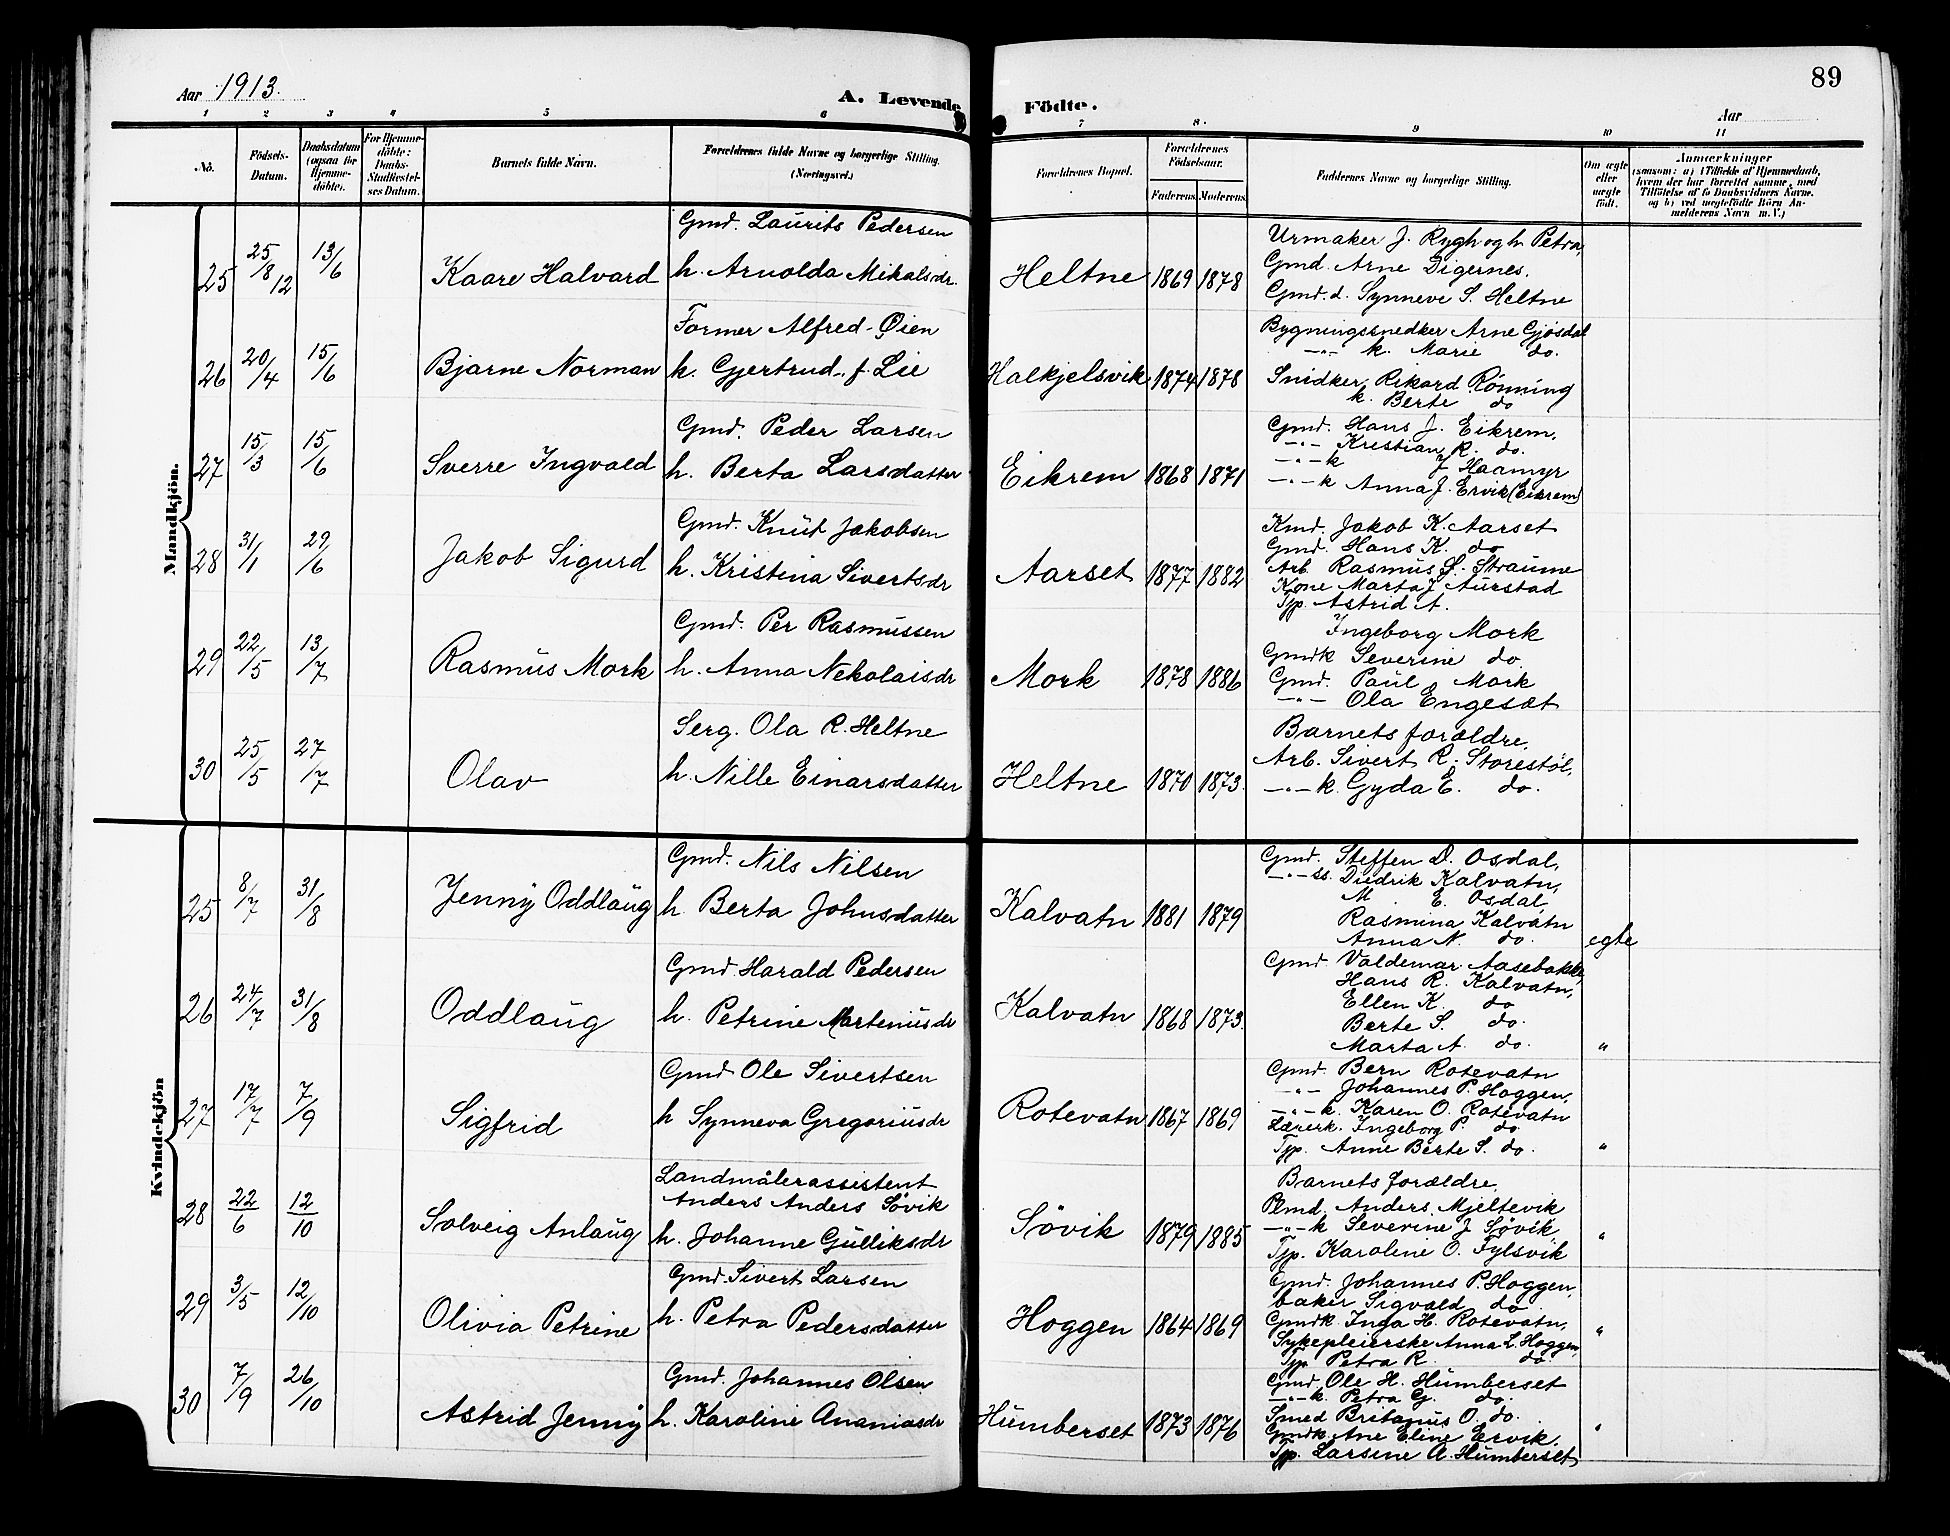 89
Aar 1913.
A. Levende Födte.
Aar
1 2 3 4 5 6 7 8. 9 10 11
No.
Födsels-Datum.
Daabsdatum (ogsaa for Hjemme-döbte).
For Hjemme-döbte: Daabs-Stadfæstel-ses Datum.
Barnets fulde Navn.
Forældrenes fulde Navne og borgerlige Stilling. (Næringsvei.)
Forældrenes Bopæl.
Forældrenes Födselsaar.
Faderens Moderens
Faddernes Navne og borgerlige Stilling.
Om ægte eller uægte födt.
Anmærkninger
(saasom: a) i Tilfælde af Hjemmedaab, hvem der har forrettet samme, med Tilföielse af to Daabsvidners Navne, og b) ved uægtefödte Börn Anmelderens Navn m. V.)
Mandkjön.
25 25/8 12 13/6 Kaare Halvard
Gmd. Laurits Pedersen
h. Arnolda Mikalsdr.
Heltne 1869 1878
Urmaker J. Rygh og h. Petra,
Gmd. Arne Digernes,
Gmd. d. Synneve S. Heltne
26 20/4 15/6 Bjarne Norman
Former Alfred Øien
h. Gjertrud f. Lie
Halkjelsvik 1874 1878
Bygningssnedker Arne Gjøsdal
-"- k. Marie do.
Snidker Rikard Rønning
k. Berte do
27 15/3 15/6 Sverre Ingvald
Gmd. Peder Larsen
h. Berta Larsdatter
Eikrem 1868 1871
Gmd. Hans J. Eikrem,
-"- Kristian R. do.
-"- k J Haamyr
-"- k Anna J. Ervik (Eikrem)
28 31/1 29/6 Jakob Sigurd
Gmd. Knut Jakobsen
h. Kristina Sivertsdr
Aarset 1877 1882
Kmd. Jakob K. Aarset
Gmd. Hans K. do
Arb. Rasmus S. Straume
Kone Marta J Aurstad
Tjp. Astrid A.
29 22/5 13/7 Rasmus Mork
Gmd. Per Rasmussen
h. Anna Nekolaisdr
Mork 1878 1886
Ingeborg Mork
Gmdk Severine do.
Gmd. Paul Mork
-"- Ola Engeset
30 25/5 27/7 Olav
Serg. Ola R. Heltne
h. Nille Einarsdatter
Heltne 1870 1873.
Barnets forældre,
Arb. Sivert R. Storestøl,
-"- k. Gyda E. do.
Kvindekjön
25 8/7 31/8 Jenny Oddlaug
Gmd. Nils Nilsen
h. Berta Johnsdatter
Kalvatn 1881 1879
Gmd. Steffen D. Osdal,
-"- ss. Diedrik Kalvatn,
M E. Osdal,
Rasmina Kalvatn
Anna N. do. egte
26 24/7 31/8 Oddlaug
Gmd Harald Pedersen
h. Petrine Martenusdr
Kalvatn 1868 1873.
Gmd Valdemar Aasebakke,
Hans R. Kalvatn,
Ellen K. do
Berte S. do.
Marta A. do. "
27 17/7 7/9 Sigfrid
Gmd Ole Sivertsen
h Synneva Gregoriusdr
Rotevatn 1867 1869
Gmd. Bern Rotevatn
-"- Johannes P. Hoggen,
-"- k. Karen O. Rotevatn
Lærerk. Ingeborg P. do
Tjp. Anne Berte S. do. "
28 22/6 12/10 Solveig Anlaug
Landmålerassistent
Anders Anders Søvik
h. Johanne Gulliksdr
Søvik 1879 1885
Barnets forældre,
Plmd. Anders Mjeltevik
-"- k Severine J Søvik,
Tjp. Karoline O. Fylsvik "
29 3/5 12/10 Olivia Petrine
Gmd. Sivert Larsen
h. Petra Pedersdatter
Hoggen 1864 1869
Gmd. Johannes P. Hoggen,
baker Sigvald do
Gmdk. Inga H. Rotevatn,
Sykepleierske Anna L. Hoggen,
Tjp. Petra R. do. "
30 7/9 26/10 Astrid Jenny
Gmd. Johannes Olsen
h. Karoline Ananiasdr
Humberset 1873 1876
Gmd. Ole H. Humberset
-"- k. Petra G. do.
Smed Britanus O. do.
Gmdk Ane Eline Ervik,
Tjp. Larsine A. Humberset "